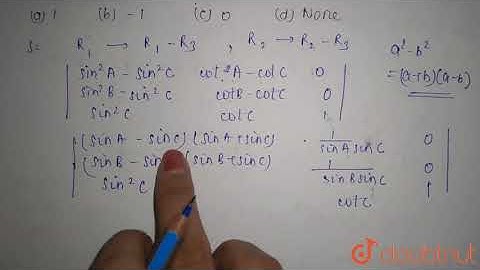 (a) 1 (b) -1 (c) 0 (d) None
S= R₁ → R₁ - R₃ , R₂ → R₂ - R₃
a² - b²
= (a+b)(a-b)
| sin²A - sin²C cot A - cot C 0 |
| sin²B - sin²C cot B - cot C 0 |
| sin²C cot C 1 |
| (sin A - sin C) (sin A + sin C) · 1/(sin A sin C) 0 |
| (sin B - sin (sin B + sin C) 1/(sin B sin C) 0 |
| sin²C cot C 1 |
doubtnut